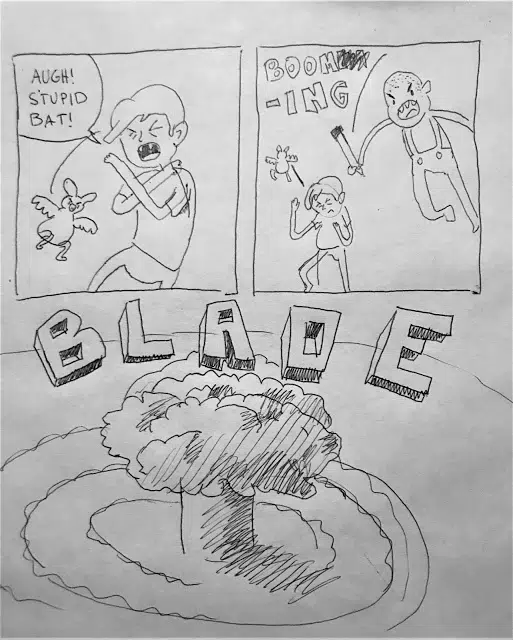 AUGH!
STUPID
BAT!
BOOM
-ING
BLADE